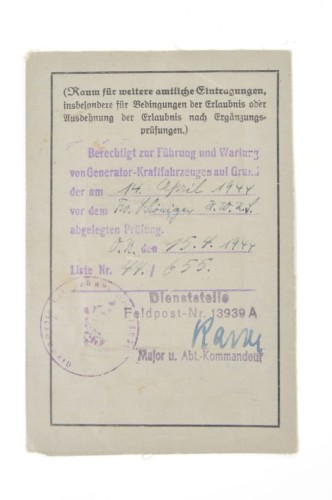 (Raum für weitere amtliche Eintragungen,
insbesondere für Bedingungen der Erlaubnis oder
Ausdehnung der Erlaubnis nach Ergänzungs-
prüfungen.)
Berechtigt zur Führung und Wartung
von Generator-Kraftfahrzeugen auf Grund
der am 14. April 1944
vor dem
abgelegten Prüfung.
O.U. den 15.4.1944
Liste Nr. 44/655.
Dienststelle
Feldpost-Nr. 13939 A
Major u. Abt.-Kommandeur